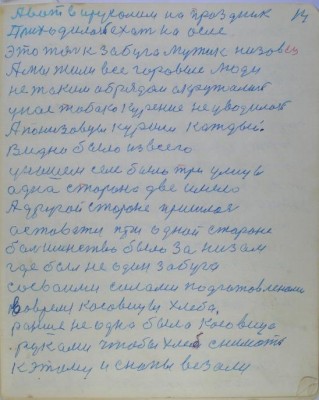 А вот в школим на праздник 14
Приходилось ехат на осле.
Это точк забуга мужик низовец
А мы жили все горовые люди
не таким обрядом
у нас табако курение не уводилось
А по низовум курили каждый.
Видно было из всего
у нашем селе было три улицы
одна сторона две имело
А другой стороне пришлося
оставати при одной стороне
болшинство было за низам
где был не один забуга
сосвоими силами подготовлеными
вовремя косовицы хлеба.
ранше не одна была косовица
руками чтобы хлеб снимать
к этому и снопы везали